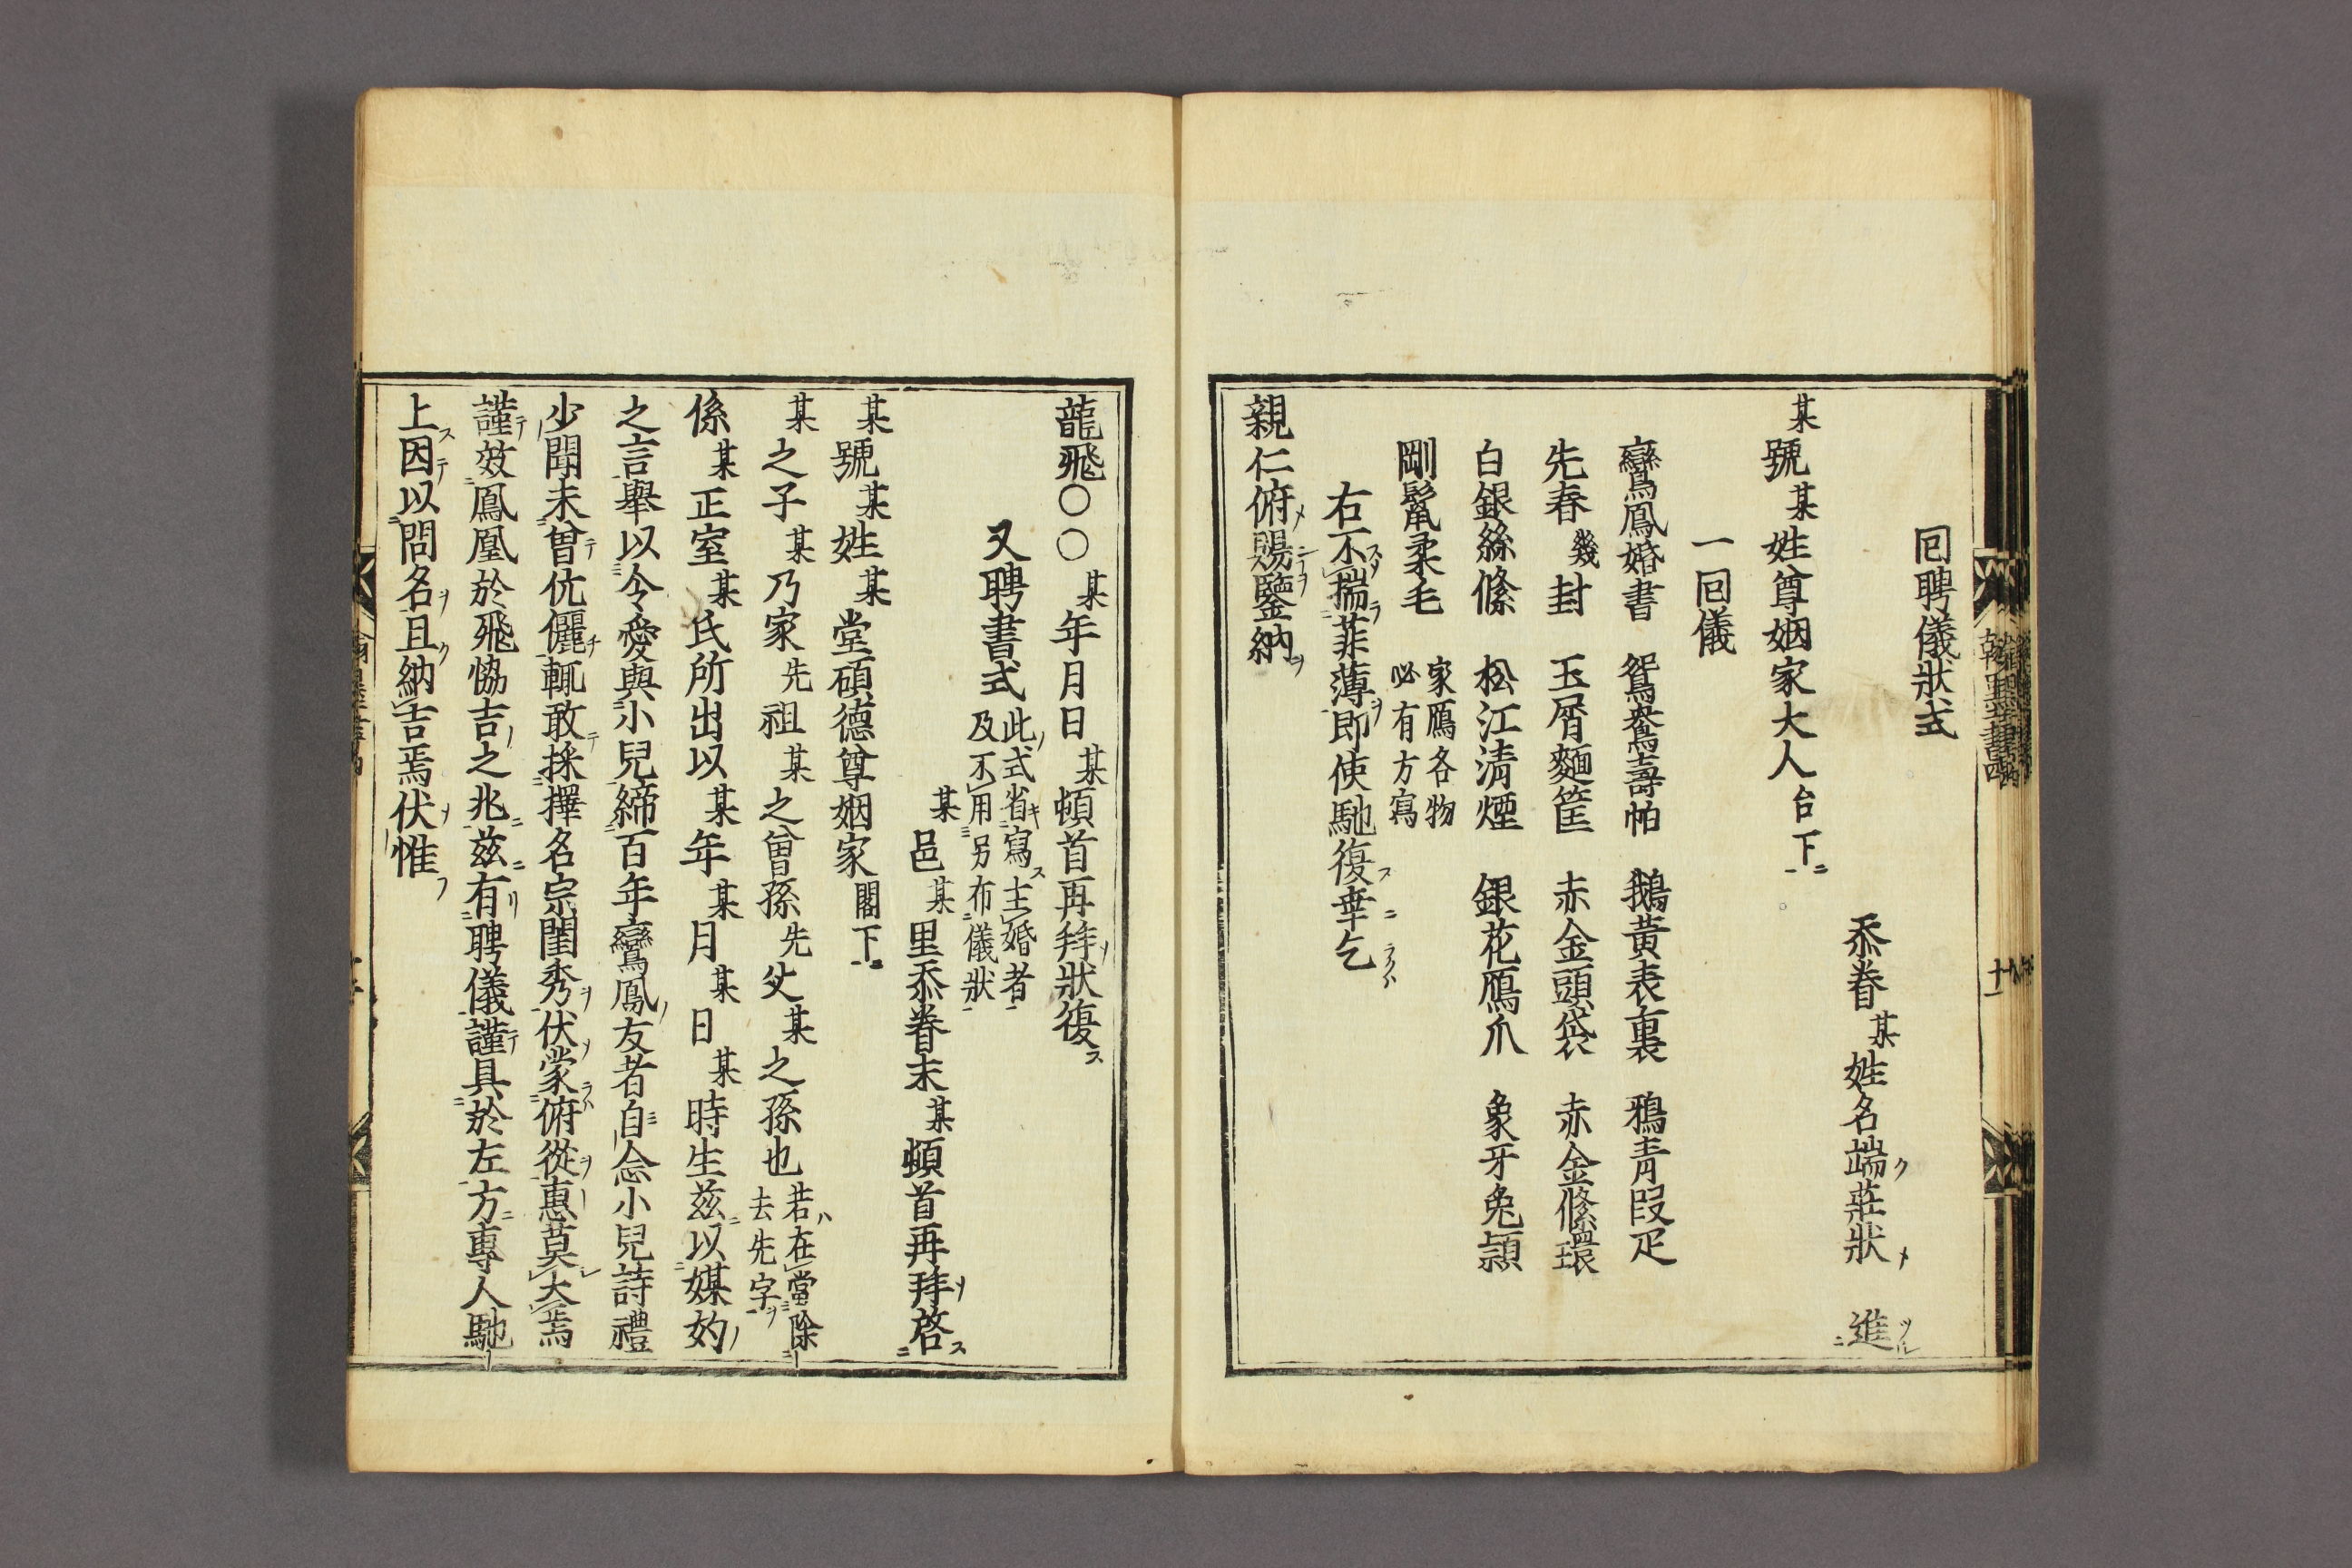 回聘儀狀式
忝眷某姓名端莊狀 進
某號某姓尊姻家大人台下
一回儀
鸞鳳婚書 鴛鴦壽帕 鵝黃表裏 鴉青段疋
先春幾封 玉屑麵筐 赤金頭袋 赤金絛環
白銀絲絛 松江清煙 銀花鴈爪 象牙兔頴
剛鬣柔毛 家鴈各物
必有方寫
右不揣菲薄即使馳復幸乞
親仁俯賜鑒納
龍飛〇〇某年月日某頓首再拜狀復
又聘書式 此式省寫主婚者
及不用另布儀狀
某邑某里忝眷末某頓首再拜啓
某號某姓某堂碩德尊姻家閣下
某之子某乃家先祖某之曾孫先父某之孫也 若在當除
去先字
係某正室某氏所出以某年某月某日某時生茲以媒妁
之言舉以令愛與小兒締百年鸞鳳友者自念小兒詩禮
少聞未曾伉儷輒敢採擇名宗閨秀伏蒙俯從惠莫大焉
謹效鳳凰於飛恊吉之兆茲有聘儀謹具於左方專人馳
上因以問名且納吉焉伏惟